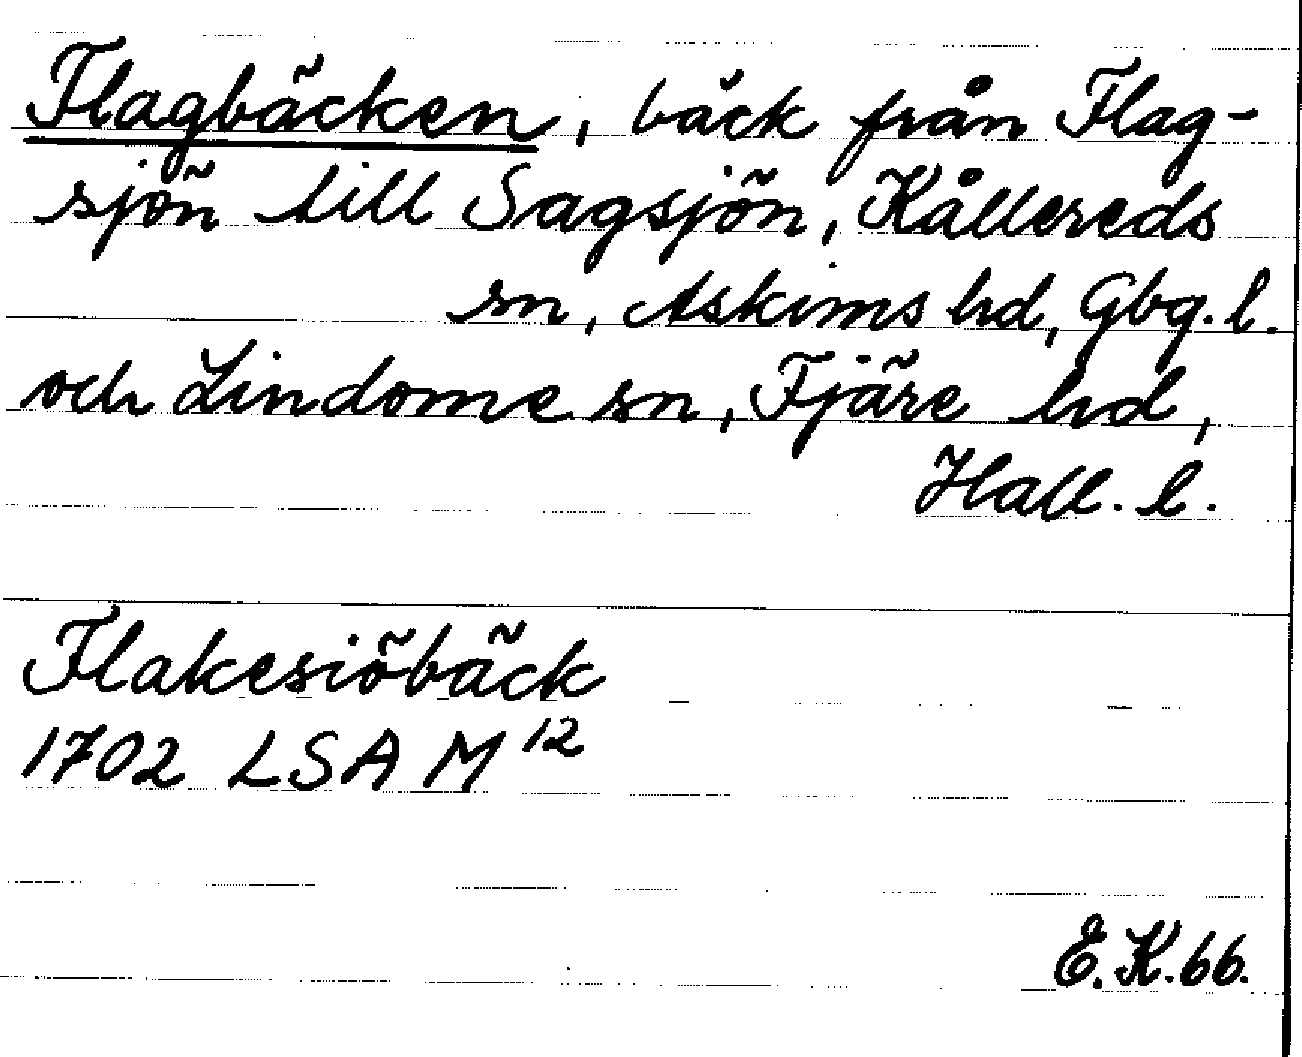 Flagbäcken, bäck från Flag-
sjön till Sagsjön, Kållereds
sn, Askims hd, Gbg. l.
och Lindome sn, Fjäre hd,
Hall. l.
Flakesiöbäck
1702 LSA M 12
E.K.66.